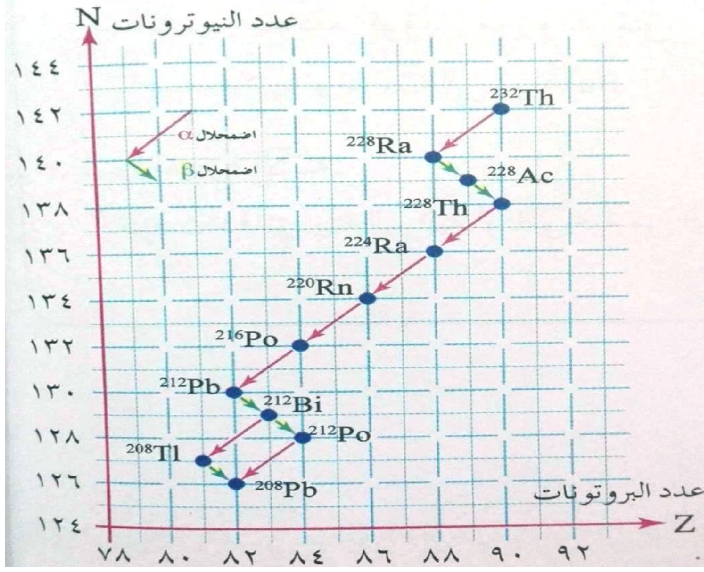 N عدد النيوترونات
١٤٤
١٤٢
١٤٠
١٣٨
١٣٦
١٣٤
١٣٢
١٣٠
١٢٨
١٢٦
١٢٤
اضمحلال α
اضمحلال β
²³²Th
²²⁸Ra
²²⁸Ac
²²⁸Th
²²⁴Ra
²²⁰Rn
²¹⁶Po
²¹²Pb
²¹²Bi
²¹²Po
²⁰⁸Tl
²⁰⁸Pb
عدد البروتونات
Z
٧٨ ٨٠ ٨٢ ٨٤ ٨٦ ٨٨ ٩٠ ٩٢